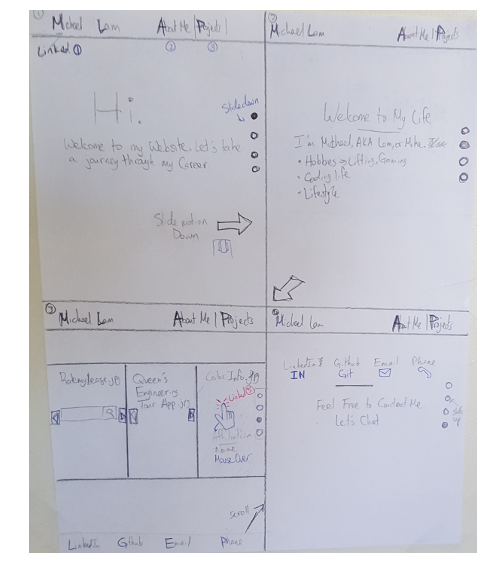 ①
Michael Lam
About Me | Projects
Linked ①
②
③
Hi.
Slidedown
Welcome to my Website. Let's take
a journey through my Career
Slide motion
Down
②
Michael Lam
About Me | Projects
Welcome to My Life
I'm Michael, AKA Lam, or Mike.
• Hobbies → Lifting, Gaming
• Coding life
• Lifestyle
③
Michael Lam
About Me | Projects
Queen's
Engineering
Tour App.jpg
Link
Mouse Over
scroll
LinkedIn Github Email Phone
Michael Lam
About Me | Projects
LinkedIn Github Email Phone
IN Git
Feel Free to Contact Me
Let's Chat